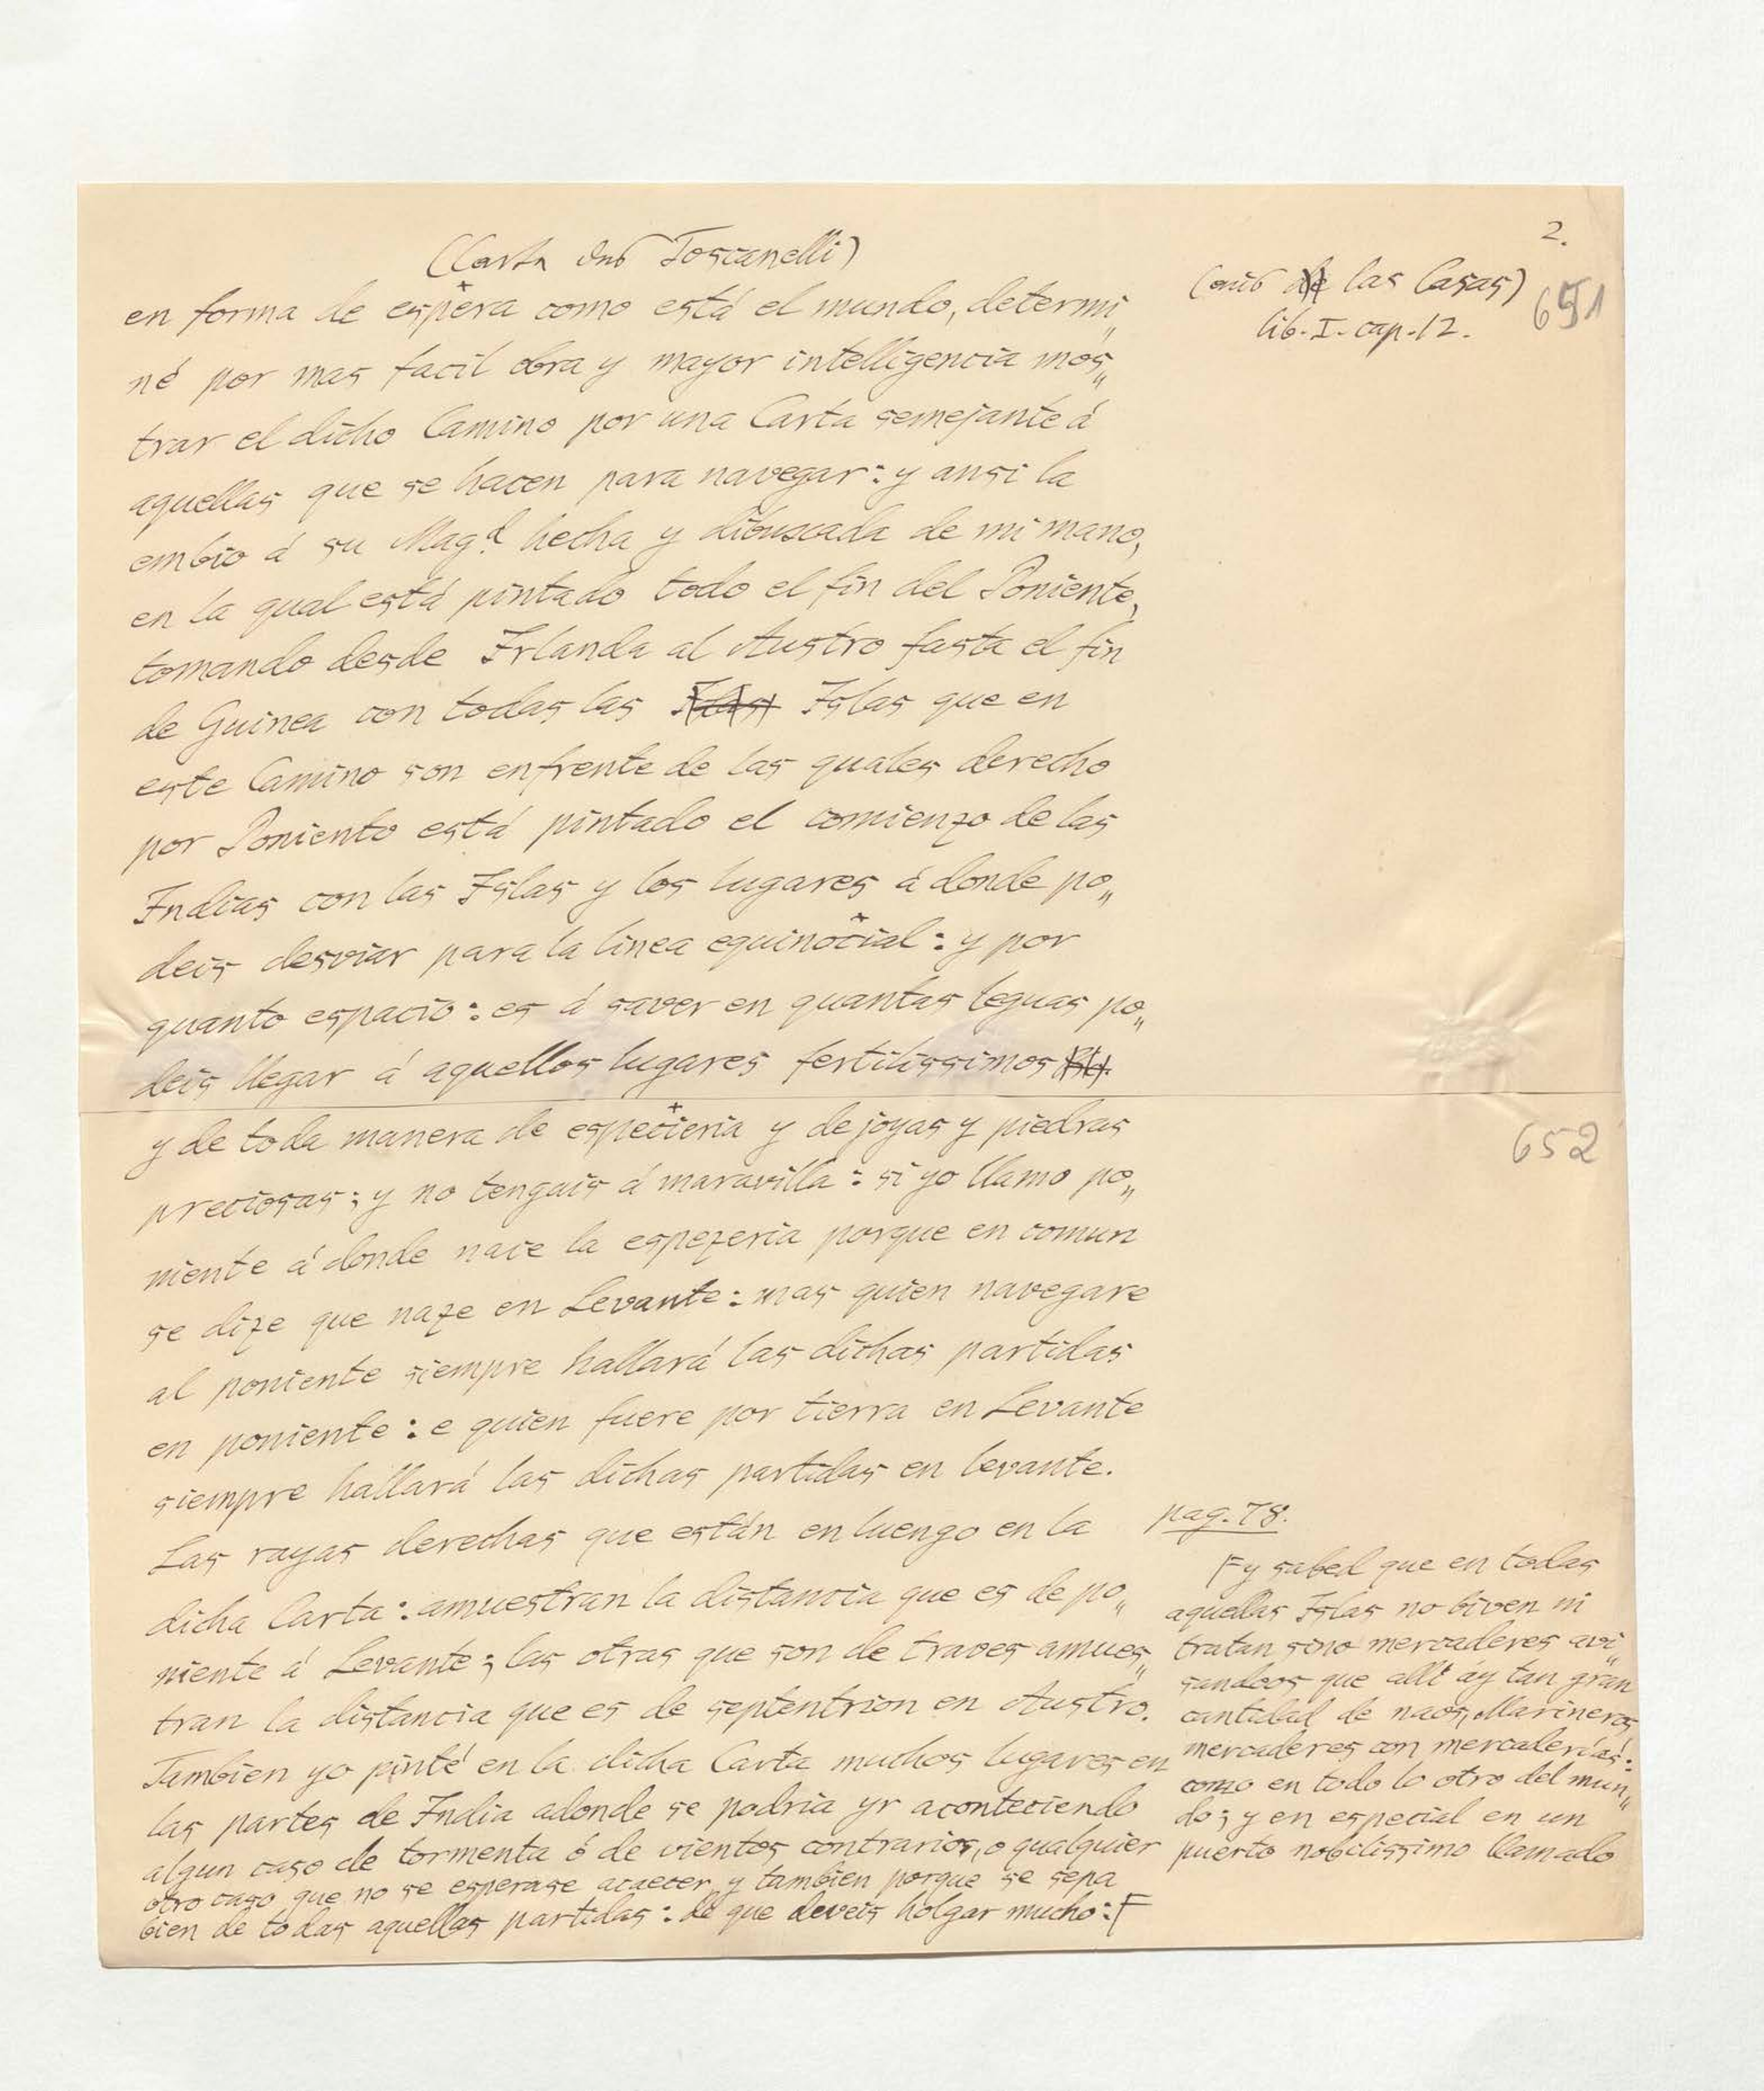 2.
(Carta Toscanelli)
(aus de las Casas)
651
lib. I. cap. 12.
en forma de espera como está el mundo, determi„
né por mas facil obra y mayor intelligencia mos„
trar el dicho Camino por una Carta semejante á
aquellas que se hacen para navegar: y ansi la
embio á su Mag.d hecha y dibuscada de mi mano,
en la qual está pintado todo el fin del Poniente,
tomando desde Irlanda al Austro fasta el fin
de Guinea con todas las Islas que en
este Camino son enfrente de las quales derecho
por Poniente está pintado el comienzo de las
Indias con las Islas y los lugares á donde po„
deis desviar para la linea equinocial: y por
quanto espacio: es á saver en quantas leguas po„
deis llegar á aquellos lugares fertilissimos
y de toda manera de especieria y de joyas y piedras
652
preciosas; y no tengais á maravilla: si yo llamo po„
niente á donde nace la espezeria porque en comun
se dize que naze en Levante: mas quien navegare
al poniente siempre hallará las dichas partidas
en poniente: e quien fuere por tierra en Levante
siempre hallará las dichas partidas en levante.
Las rayas derechas que están en luengo en la
dicha Carta: amuestran la distancia que es de po„
niente á Levante; las otras que son de traves amues„
tran la distancia que es de septentrion en Austro.
Tambien yo pinté en la dicha Carta muchos lugares en
las partes de India adonde se podria yr aconteciendo
algun caso de tormenta ó de vientos contrarios, o qualquier
otro caso que no se esperase acaecer y tambien porque se sepa
bien de todas aquellas partidas: de que deveis holgar mucho: F
pag. 78.
F y sabed que en todas
aquellas Islas no biven ni
tratan sino mercaderes avi„
sandoos que alli ay tan gran
cantidad de naos, Marineros
mercaderes con mercaderías:
como en todo lo otro del mun„
do; y en especial en un
puerto nobilissimo llamado